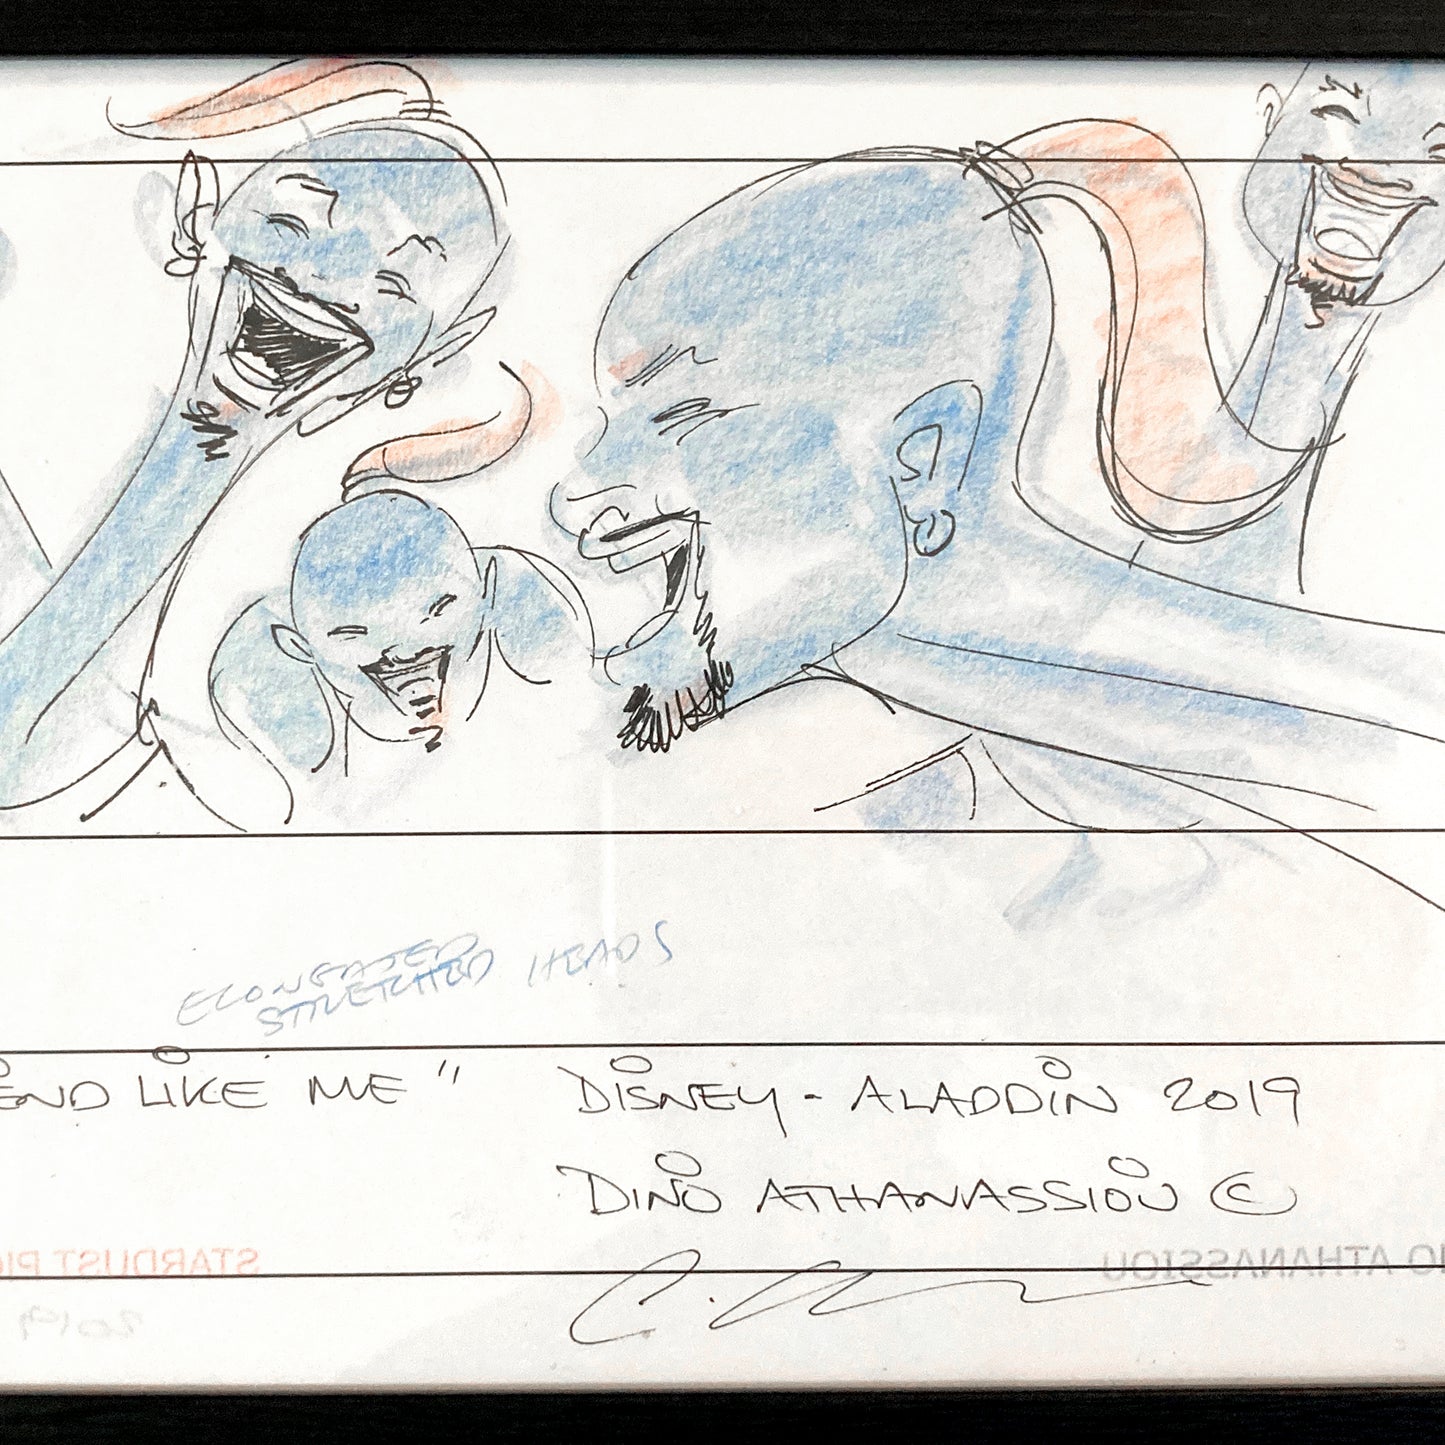 ELONGATED
STRETCHED HEADS
END LIKE ME" DISNEY - ALADDIN 2019
DINO ATHANASSIOU ©
STARDUST PI O ATHANASSIOU
2019